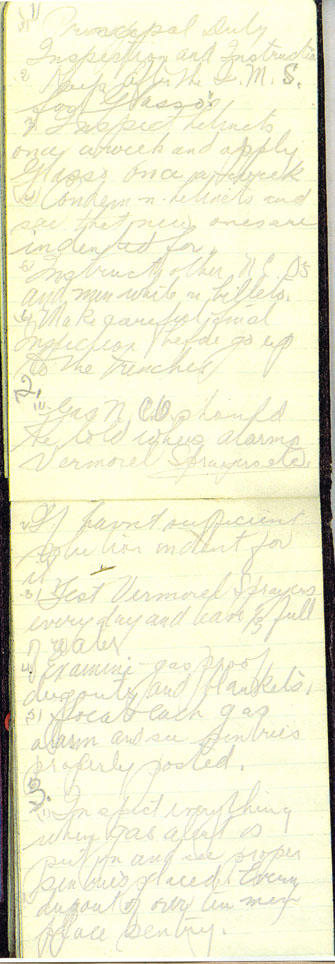 1) Principal Duty
Inspection and Instruction
2 Keep after the Q. M. S.
for Glasso's
3 Inspect helmets
once a week and apply
Glasso once a week
4) Condemn helmets and
see that new ones are
indented for.
5) Instruct other N.C.Os
and men while in billets.
6) Make careful
Inspection before go up
to the Trenches
2.
(1) Gas N CO should
be told where alarms
Vermorel Sprayers etc.
2) If havnt sufficient
solution indent for
it
3) Test Vermorel Sprayers
every day and have 2/3 full
of water
4) Examine gas proof
dugouts and blankets.
5) Locate each gas
alarm and see sentries
properly posted.
3.
(1) Inspect everything
when gas alert is
put on and see proper
sentries placed. Every
dugout of over ten men
place sentry.